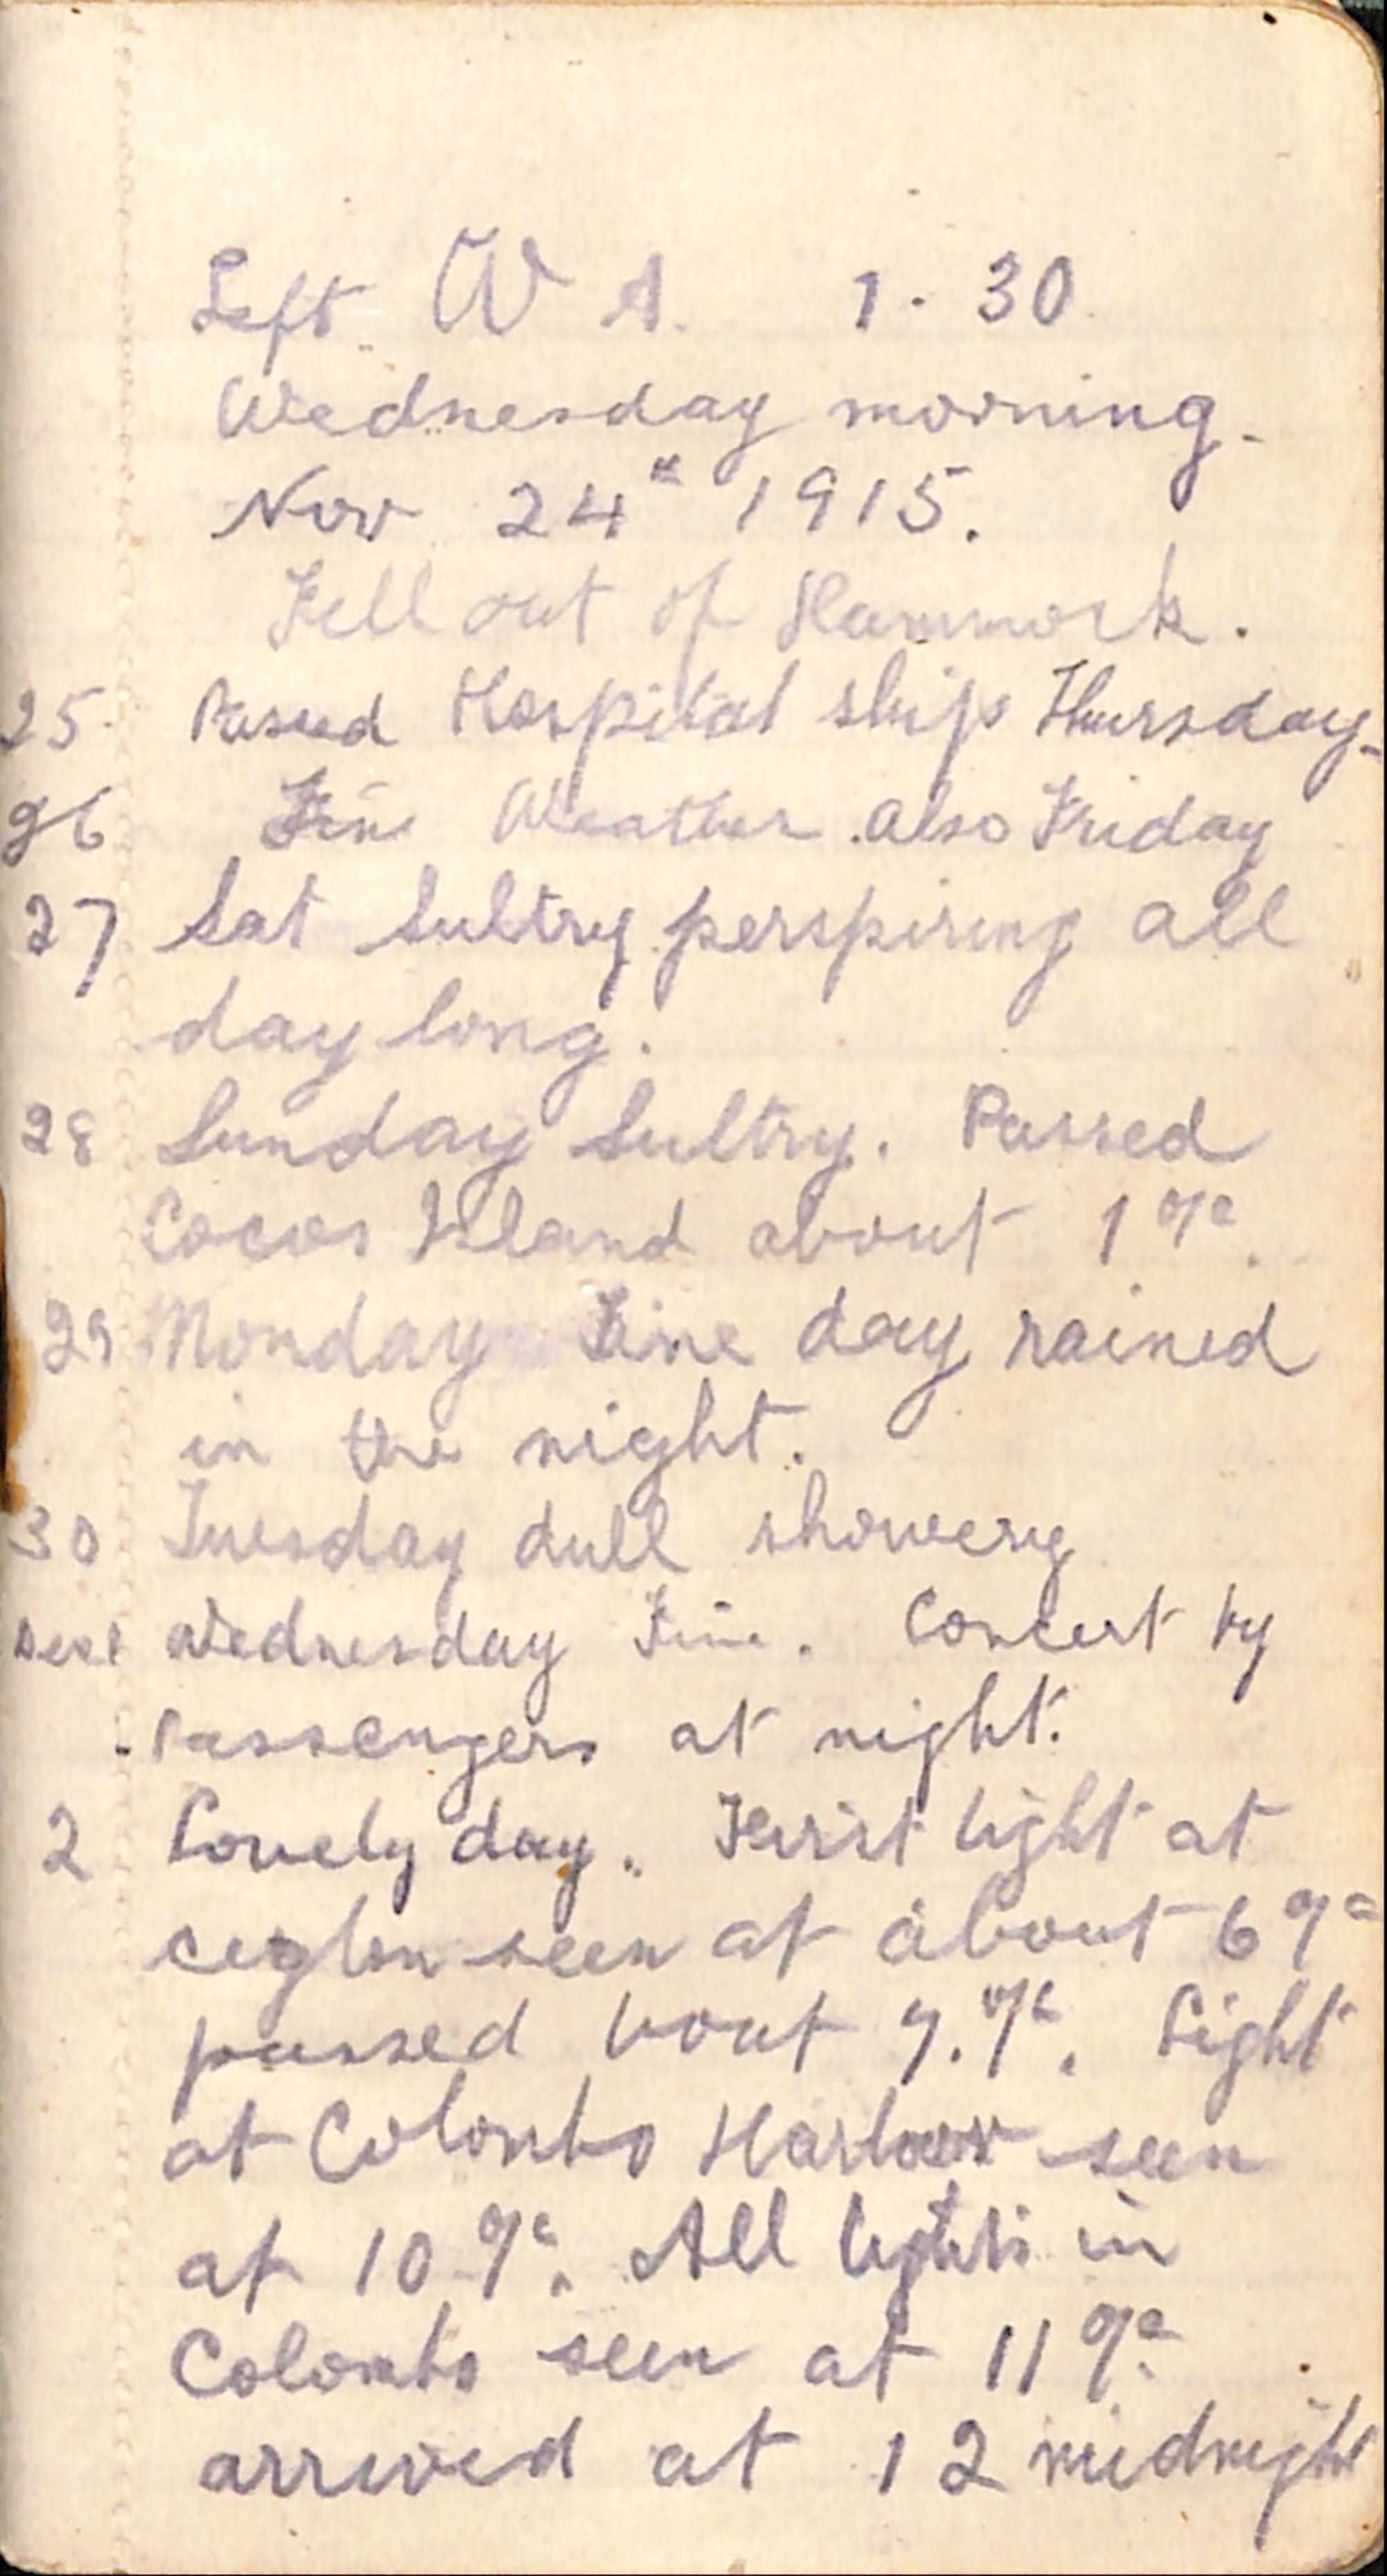 Left W A. 1.30
Wednesday morning.
Nov 24th 1915.
Fell out of Hammock.
25 Passed Hospital ship Thursday.
26 Fine Weather. also Friday
27 Sat Sultry perspiring all
day long.
28 Sunday Sultry. Passed
Cocos Island about 1 oc.
29 Monday Fine day rained
in the night.
30 Tuesday dull showery
Dec 1 Wednesday Fine. Concert by
Passengers at night.
2 Lovely day. First light at
ceylon seen at about 6 oc
passed bout 7. oc. Light
at Colombo Harbour seen
at 10 oc. All lights in
Colombo seen at 11 oc
arrived at 12 midnight